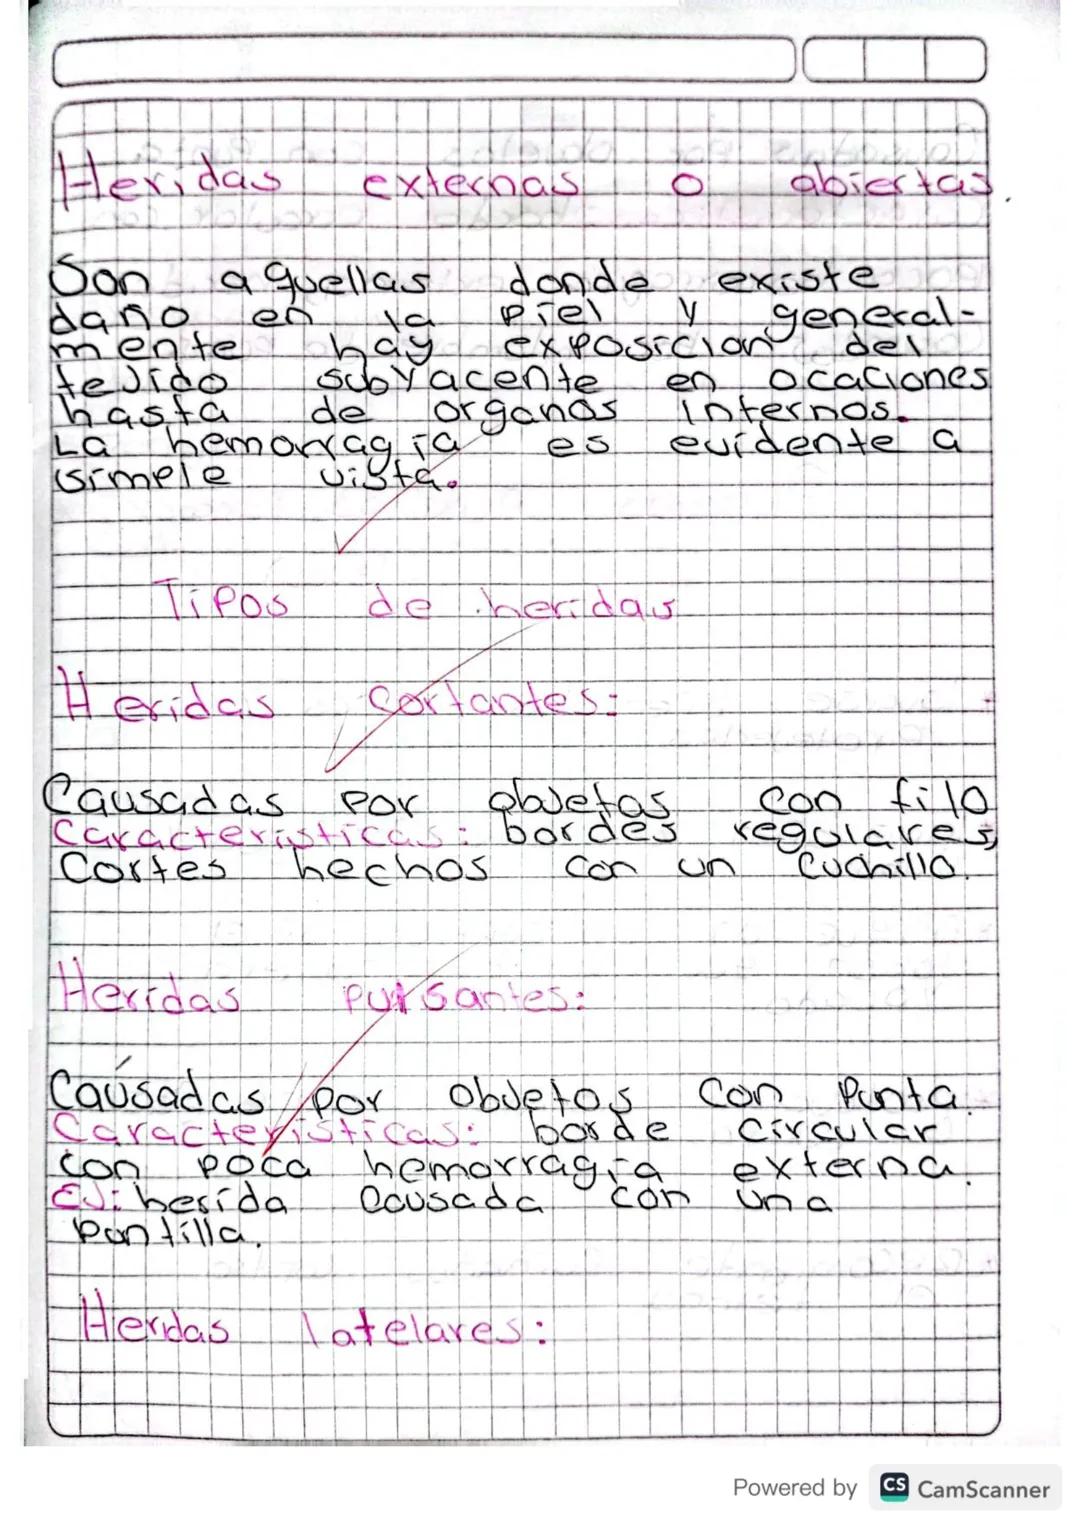 Heridas externas o abiertas
Son aquellas donde existe
daño en la piel y general-
mente hay exposicion del
tejido subyacente en ocaciones
hasta de organos internos.
La hemorragia es evidente a
simple vista.
Tipos de heridas
Heridas cortantes:
Causadas por objetos con filo
Caracteristicas: bordes regulares,
Cortes hechos con un Cuchillo.
Heridas punsantes:
Causadas por Objetos Con Punta.
Caracteristicas: borde circular
con poca hemorragia externa.
EJ: herida causada con una
puntilla.
Heridas latelares:
Powered by CS CamScanner